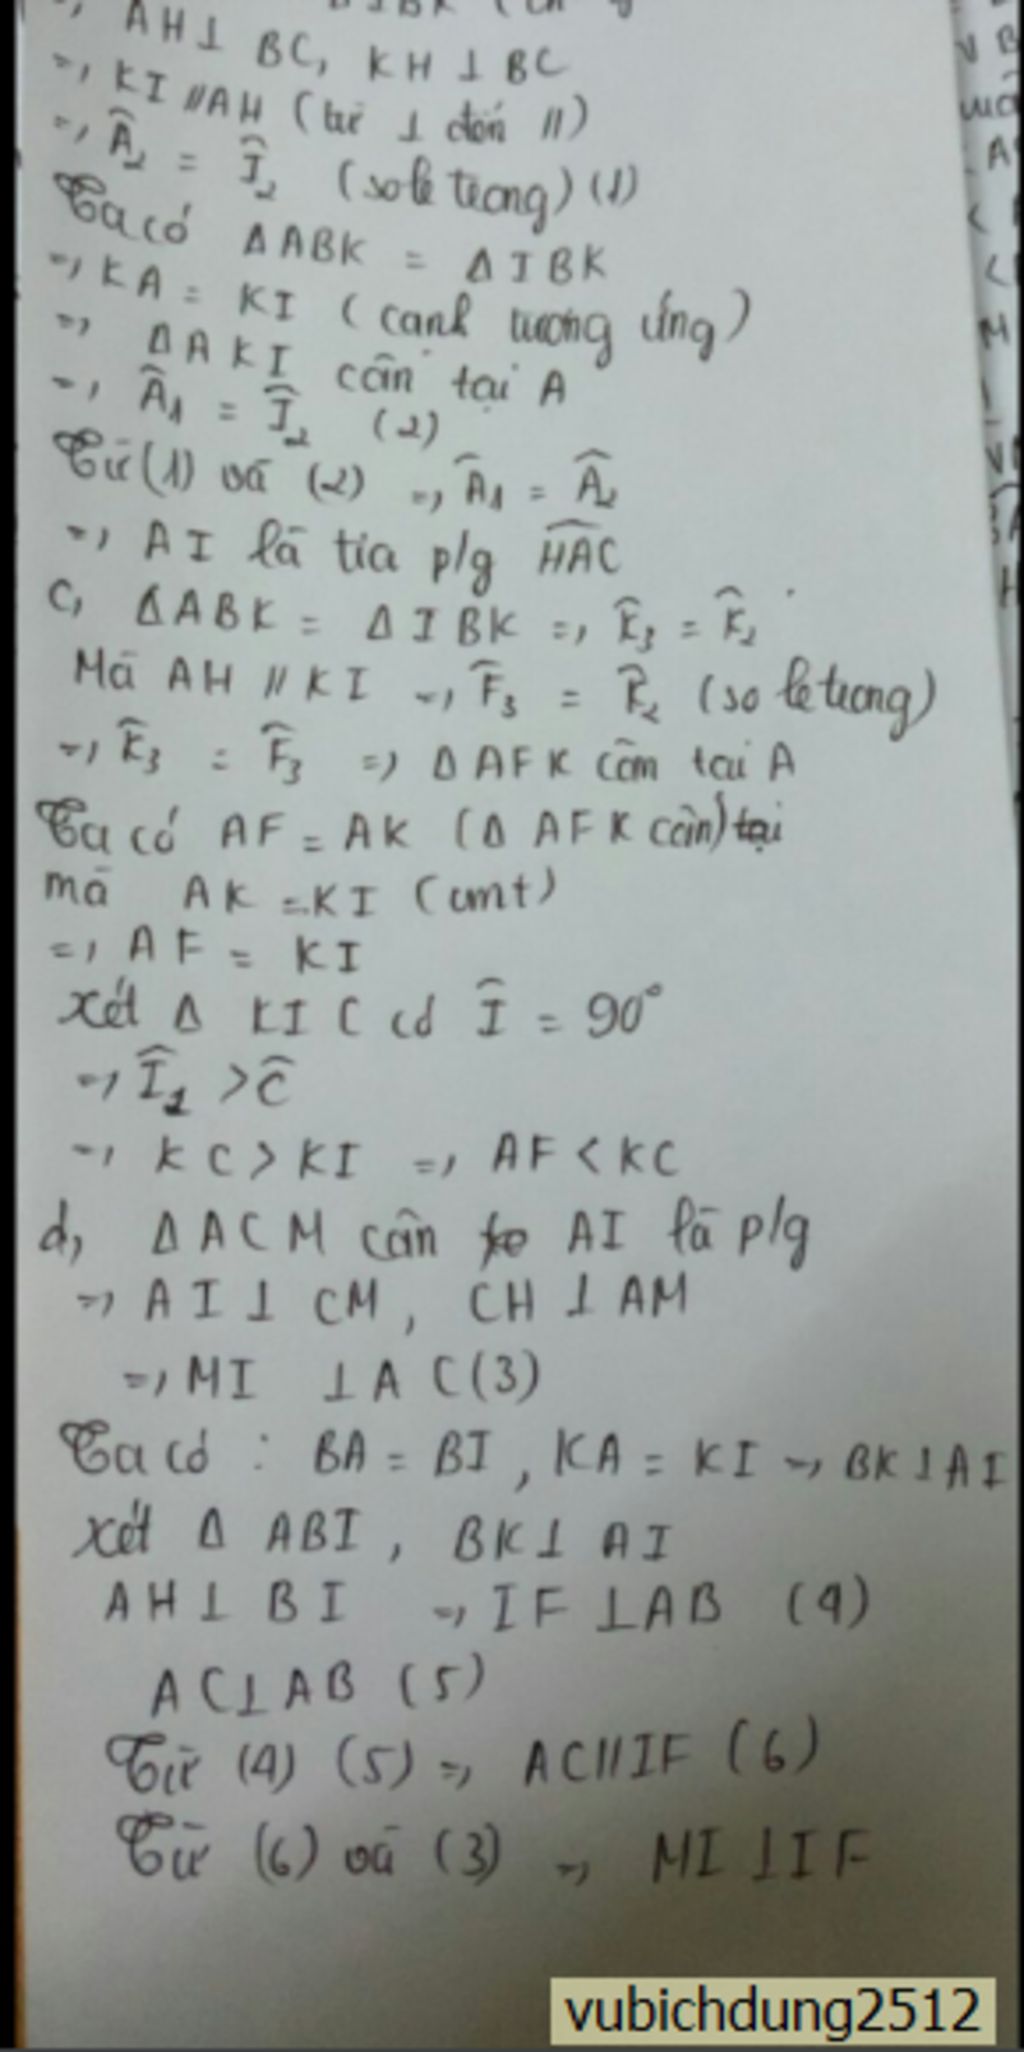 AH⊥ BC, KH ⊥ BC
=, KI //AH (từ ⊥ đến //)
=, Â₂ = Î₂ (so le trong) (1)
Ta có ΔABK = ΔIBK
=, KA = KI (cạnh tương ứng)
=, ΔAKI cân tại A
=, Â₁ = Î₂ (2)
Từ (1) và (2) =, Â₁ = Â₂
=, AI là tia p/g HAC
C, ΔABK = ΔIBK =, K̂₃ = K̂₂
Mà AH // KI =, F̂₃ = K̂₂ (so le trong)
=, K̂₃ = F̂₃ =) ΔAFK cân tại A
Ta có AF = AK (Δ AFK cân) tại
mà AK = KI (cmt)
=, AF = KI
xét Δ KIC có Î = 90°
=, Î₁ > Ĉ
=, KC > KI =, AF < KC
d, ΔACM cân AI là p/g
=, AI ⊥ CM, CH ⊥ AM
=, MI ⊥ AC (3)
Ta có : BA = BI, KA = KI =, BK ⊥ AI
xét Δ ABI, BK ⊥ AI
AH ⊥ BI =, IF ⊥ AB (4)
AC ⊥ AB (5)
Từ (4) (5) =, AC // IF (6)
Từ (6) và (3) =, MI ⊥ IF
vubichdung2512